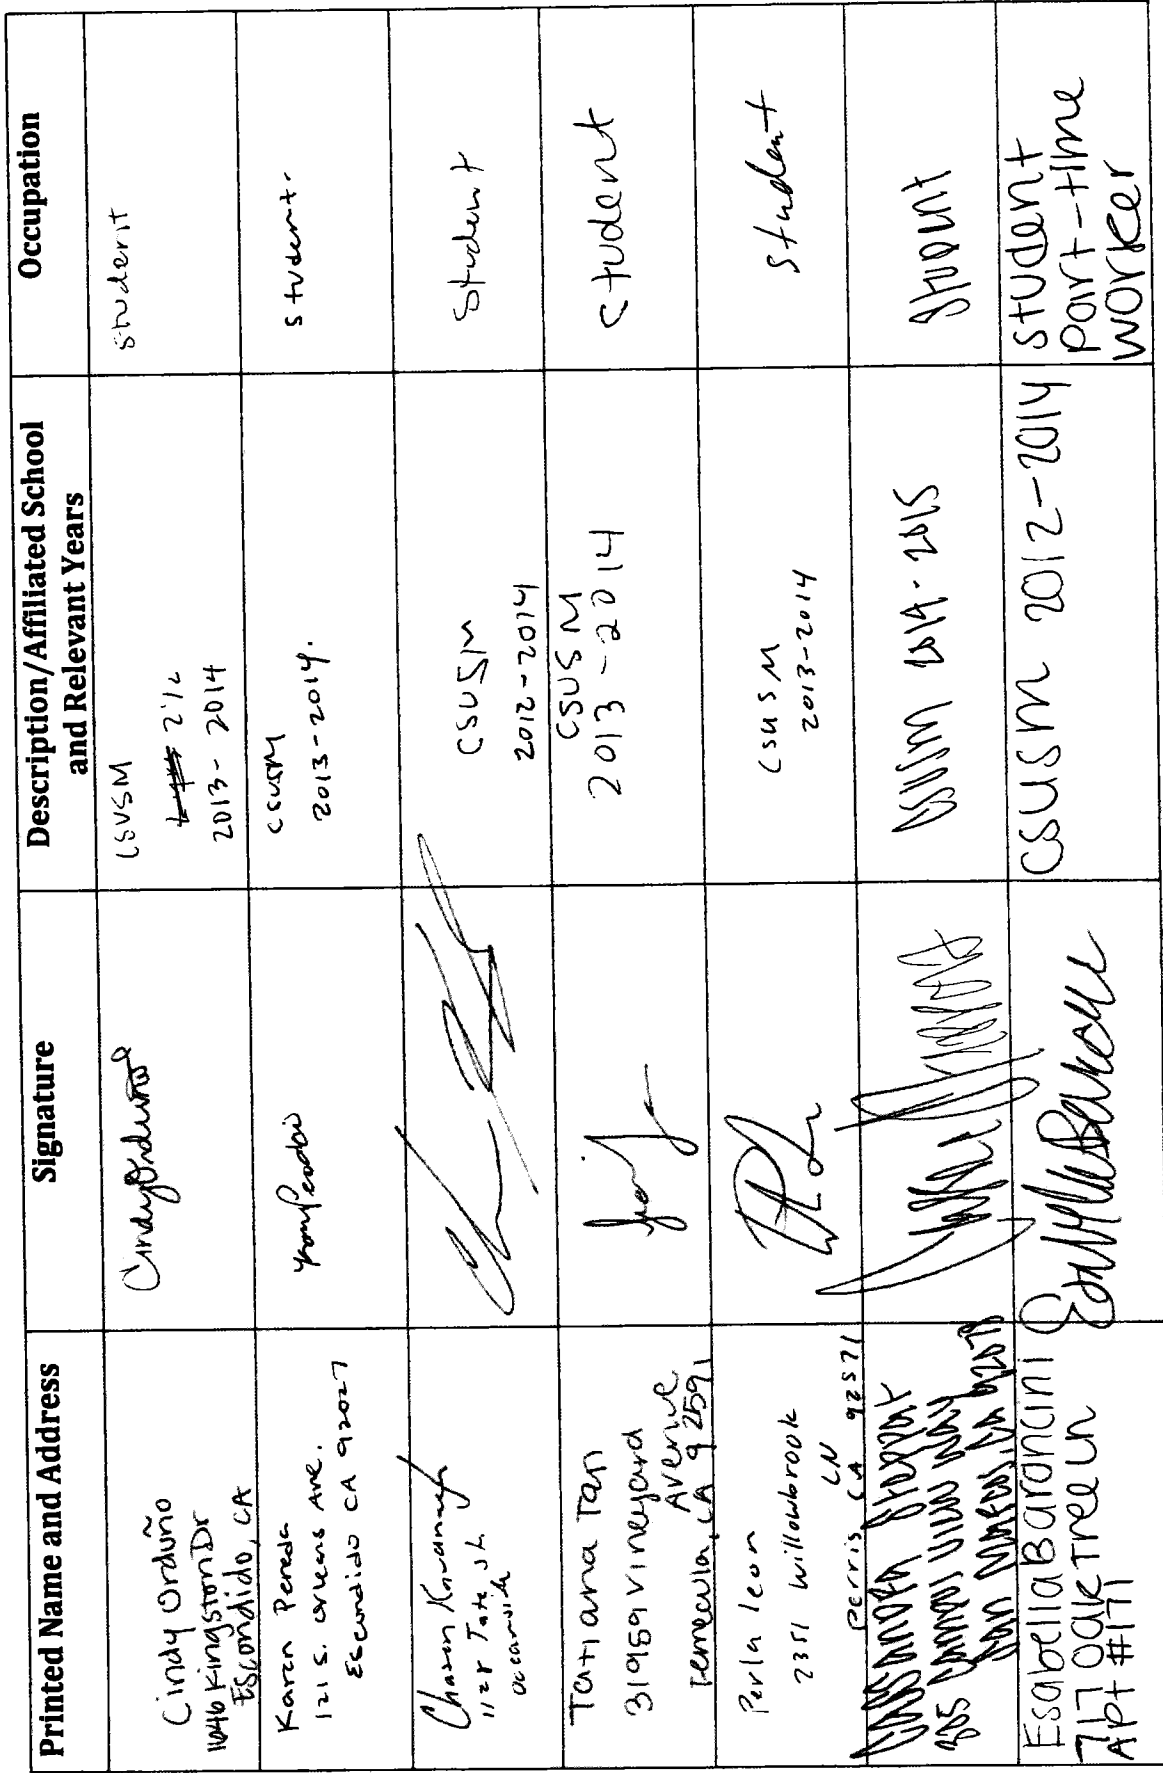 Printed Name and Address
Signature
Description/Affiliated School
and Relevant Years
Occupation
Cindy Orduño
1646 Kingston Dr
Escondido, CA
Cindy Orduño
CSUSM
2012
2013 - 2014
student
Karen Pereda
121 S. orleans Ave.
Escondido CA 92027
CSUSM
2013-2014.
student.
Chason
1128 Tate St
oceanside
CSUSM
2012-2014
Student
Tatiana Tan
31959 Vineyard
Avenue
Temecula, CA 92591
CSUSM
2013-2014
student
Perla leon
2351 willowbrook
LN
Perris CA 92571
CSUSM
2013-2014
student
Cassandra
305 Campus View Way
San Marcos, CA 92078
CSUSM 2014-2015
Student
Esabella Barancini
717 Oak Tree Ln
Apt #171
CSUSM 2012-2014
student
part-time
worker